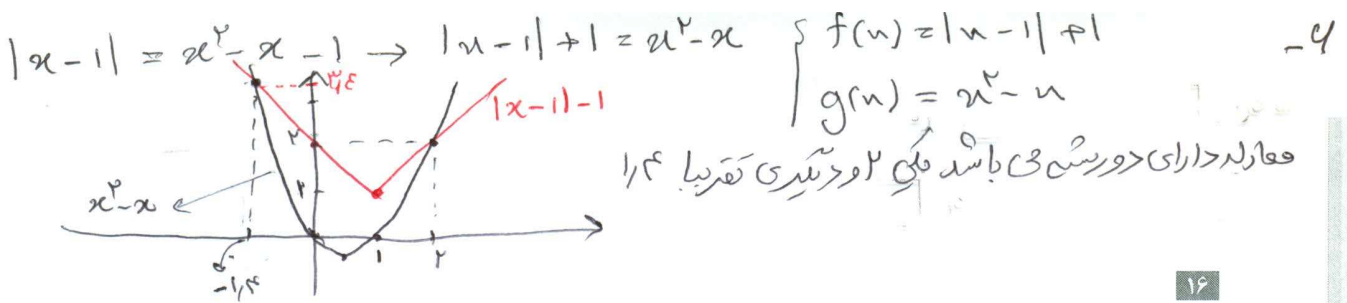 ۶-
|x-1| = x²-x-1 → |x-1|+1 = x²-x { f(x) = |x-1|+1
g(x) = x²-x
۳٫۴
|x-1|-1
۲
۱
x²-x
-۱٫۴
۱ ۲
معادله دارای دو ریشه می باشد یکی ۲ و دیگری تقریبا ۱٫۴
۱۶